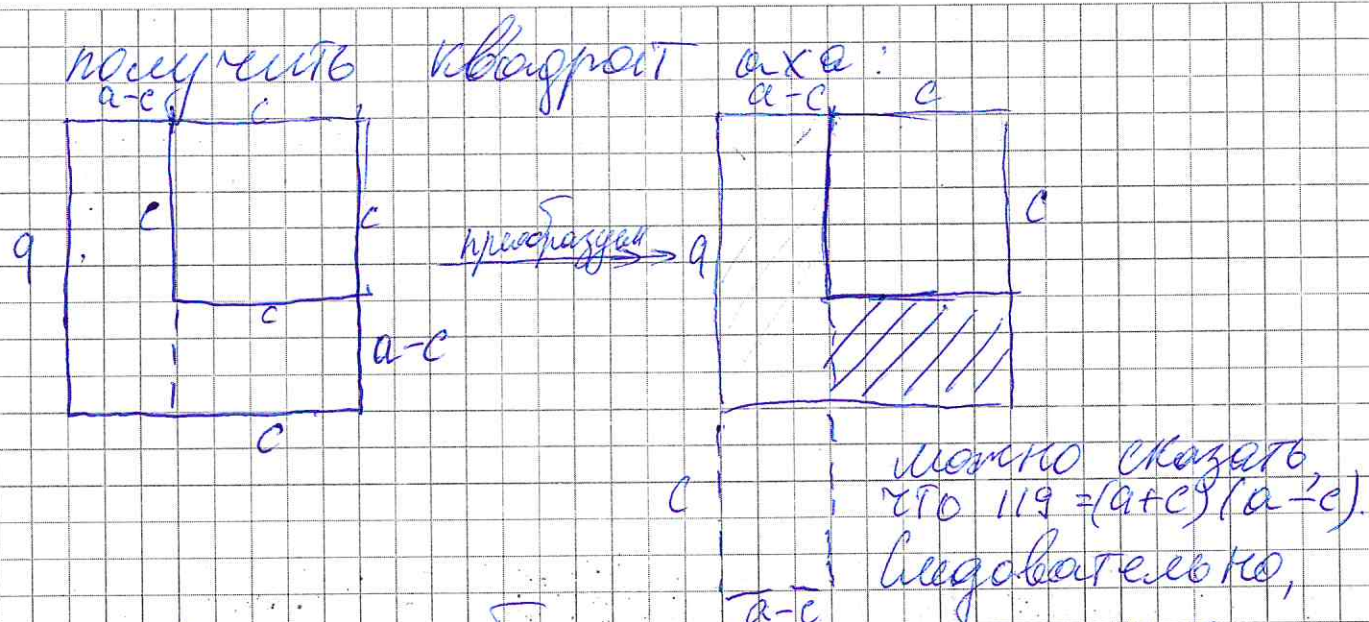 получить квадрат axa:
a-c c a-c c
c c c
a преобразуем a
c
a-c
c
можно сказать,
c что 119 =(a+c)(a-c).
Следовательно,
a-c